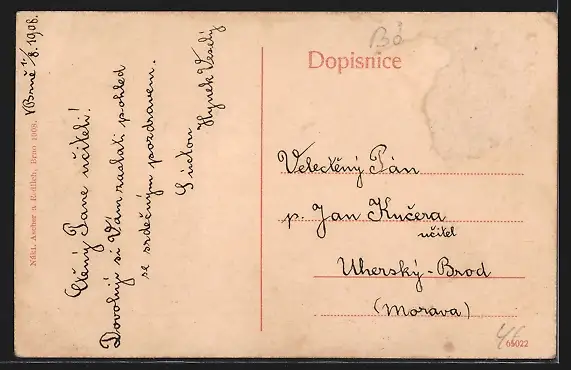 V Brně 1/8. 1908.
Ctěný Pane učiteli!
Dovoluji si Vám zaslati pohled
se srdečným pozdravem.
S úctou
Hynek Veselý
Nákl. Ascher a Redlich, Brno 1908.
Bó
Dopisnice
Velectěný Pán
p. Jan Kučera
učitel
Uherský-Brod
(Morava)
65022